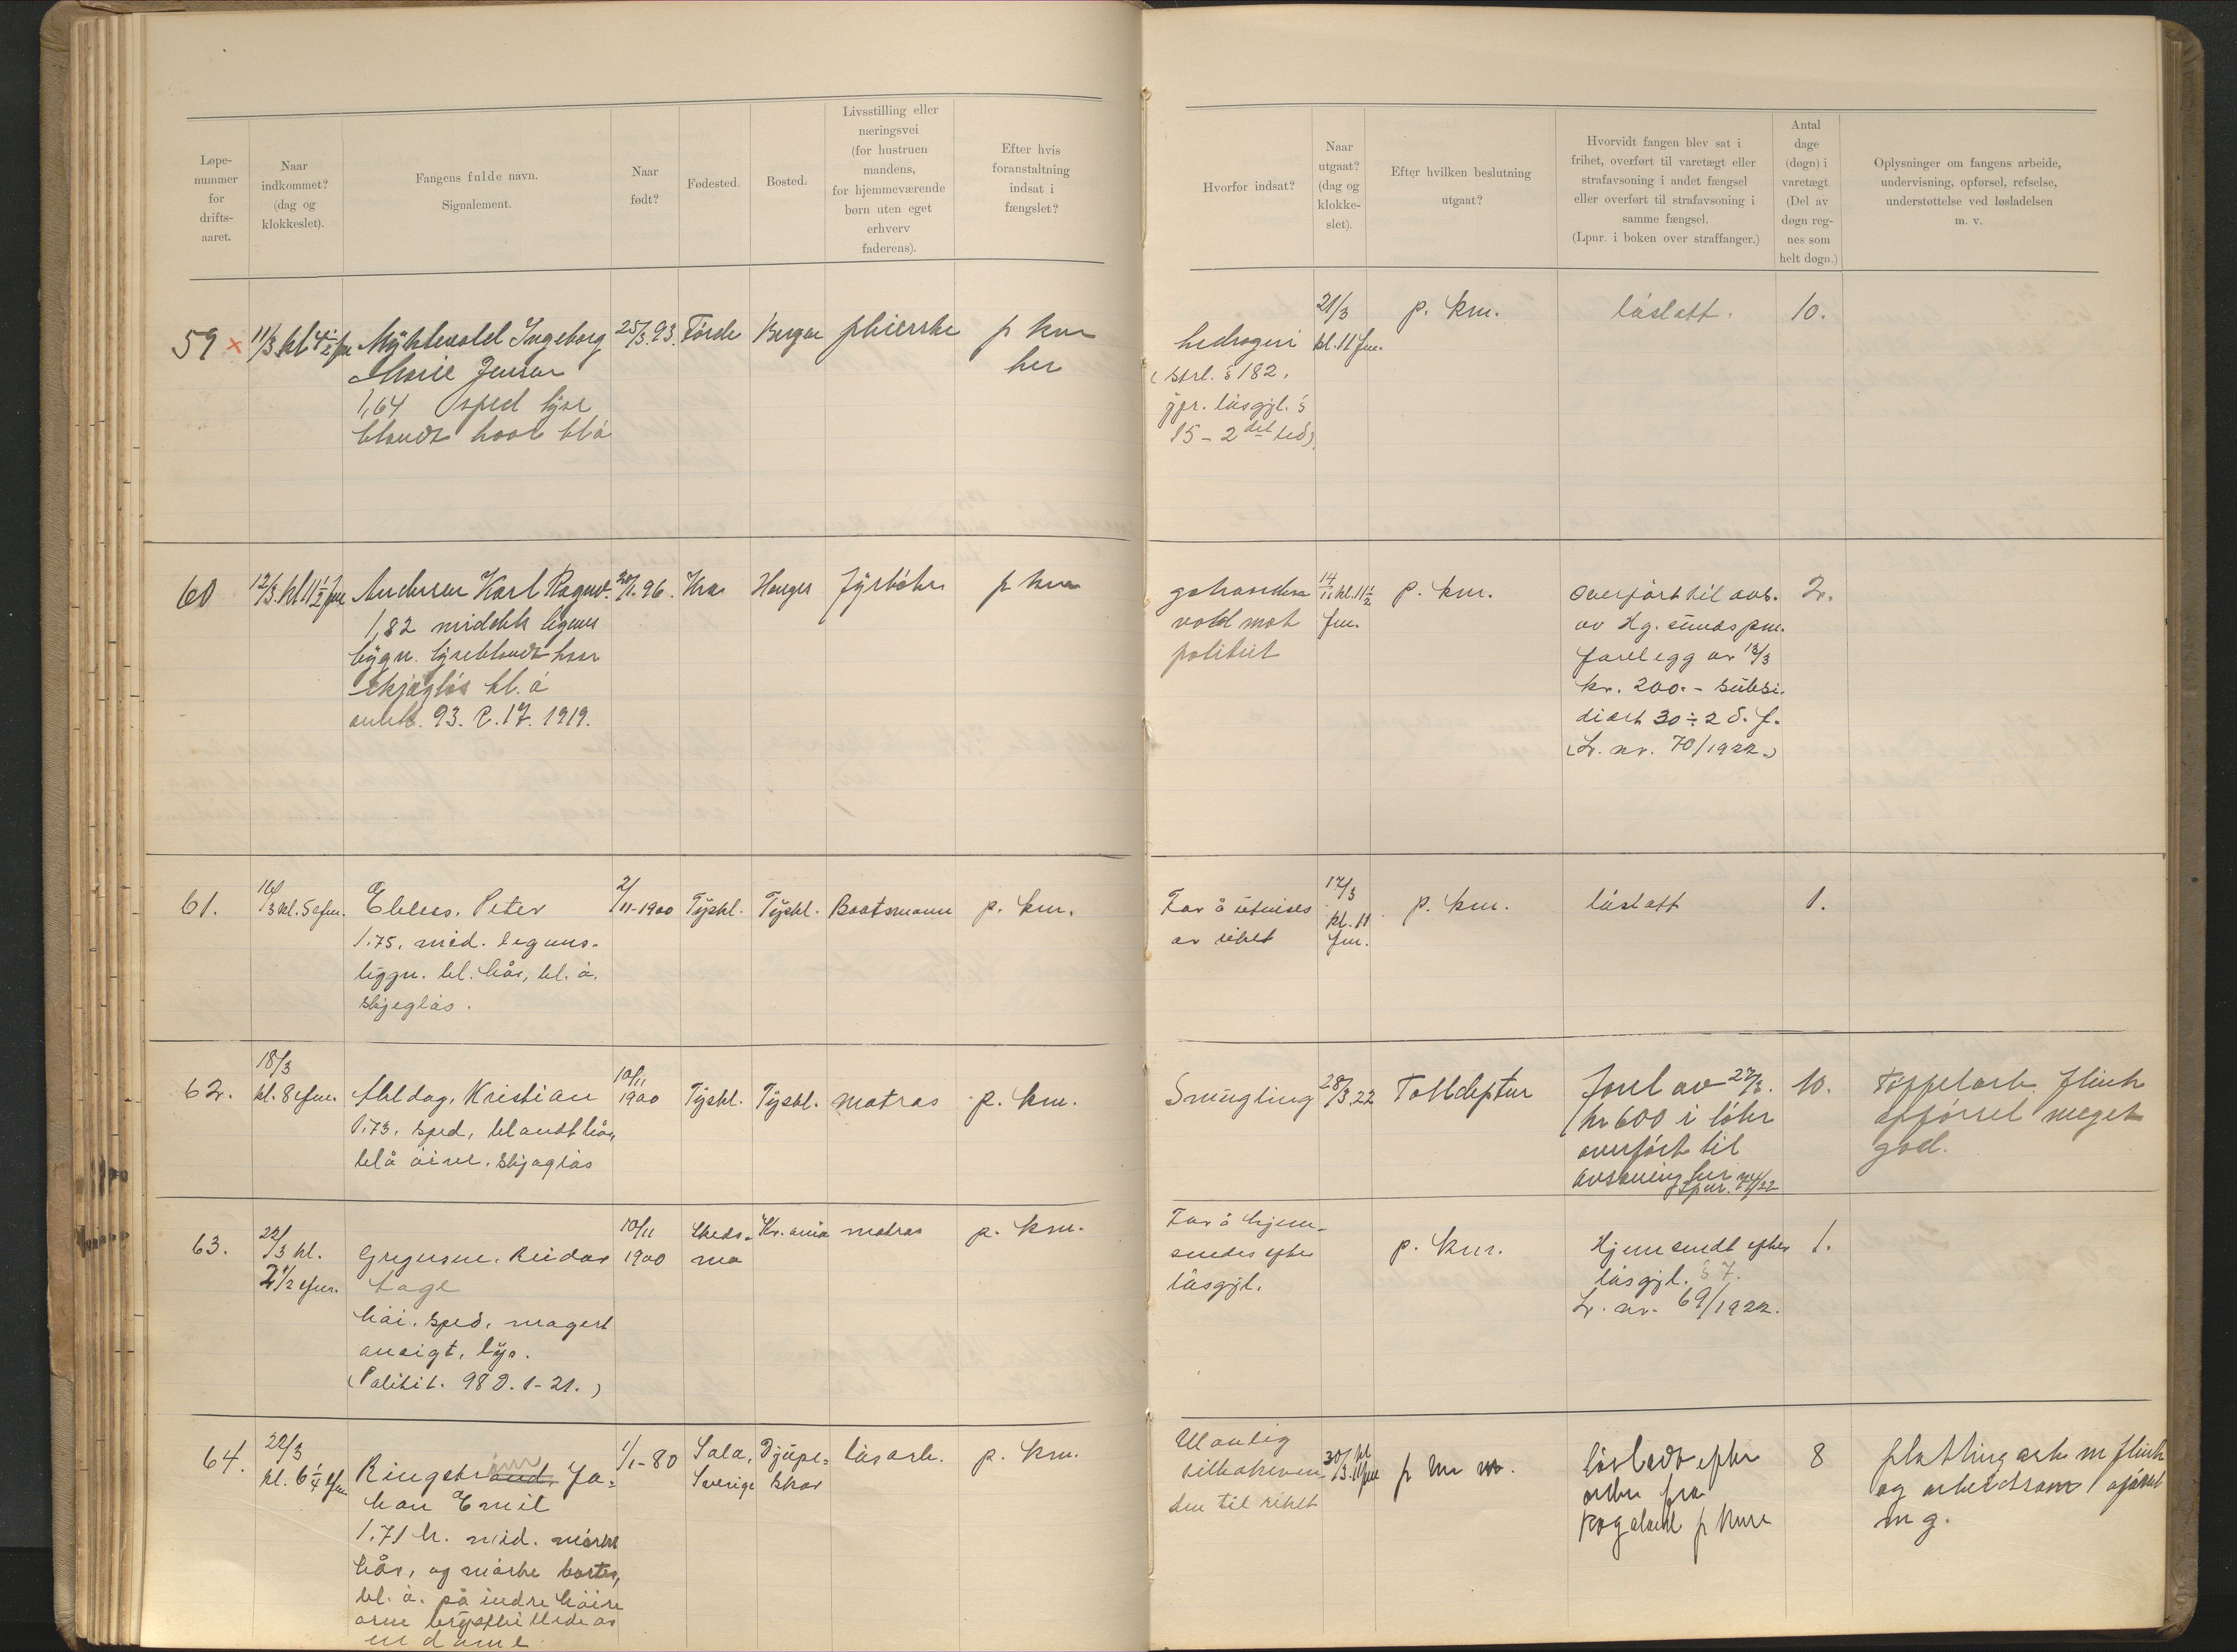 Løpe-
nummer
for
drifts-
aaret.
Naar
indkommet?
(dag og
klokkeslet).
Fangens fulde navn.
Signalement.
Naar
født?
Fødested.
Bosted.
Livsstilling eller
næringsvei
(for hustruen
mandens,
for hjemmeværende
børn uten eget
erhverv
faderens).
Efter hvis
foranstaltning
indsat i
fængslet?
Hvorfor indsat?
Naar
utgaat?
(dag og
klokke-
slet).
Efter hvilken beslutning
utgaat?
Hvorvidt fangen blev sat i
frihet, overført til varetægt eller
strafavsoning i andet fængsel
eller overført til strafavsoning i
samme fængsel.
(Lpnr. i boken over straffanger.)
Antal
dage
(døgn) i
varetægt.
(Del av
døgn reg-
nes som
helt døgn.)
Oplysninger om fangens arbeide,
undervisning, opførsel, refselse,
understøttelse ved løsladelsen
m. v.
59 x 11/3 kl 4½ fm Ingeborg 25/3.93. Førde Bergen p km
Marie Jensen her
1,64 sped lyse
blondt haar blå
bedrageri 21/3 kl. 11 fm. p. km. løslatt. 10.
(strl. § 182,
jfr. løsgjl. §
15 - 2det led)
60 12/3. kl 11½ fm Andersen Karl Ragnv. 20/1.96. Kra Hauger fyrbøter p km
1,82 middels legems
bygn. lyseblondt haar
skjægløs bl. ø
anm. 93. P. 17. 1919.
vold mot
politiet
kl. 11½ fm. p. km.
Overført til avs. 2.
av Hg. sunds pm.
forelegg av 13/3
kr. 200.- subsi.
diært 30 ÷ 2 d. f.
(L. nr. 70/1922.)
61. 16/3 kl. 5 efm. Peter 2/11-1900 Tyskl. Tyskl. Baatsmann p. km.
1.75, mid. legems-
byggn. bl. hår, bl. ø.
skjegløs.
For å utvises
av riket
17/3
kl. 11
fm.
p. km. løslatt 1.
62. 18/3 kl. 8 efm. Ahldag, Kristian 10/11 1900 Tyskl. Tyskl. matros p. km.
1.73, sped, blondt hår,
blå øine. skjægløs
Smugling 28/3.22 Tolldeptur forel av 27/3. 10.
kr 600 i
overført til
avsoning her
Lpnr. 74/22
Tøffelarb. flink
opførsel meget
god.
63. 22/3 kl. 2½ efm. Gregersen, Reidar 10/11 1900 Skeds- mo Kr.ania matros p. km.
Lage
høi, sped, magert
ansigt, lys.
(Politit. 98 D. 1-21.)
For å hjem-
sendes efter
løsgjl.
p. km. Hjemsendt efter 1.
løsgjl. § 7.
L. nr. 69/1922.
64. 22/3 kl. 6¼ efm Ringstrand, Jo- 1/1-80 Sala, Sverige Djupe- skar løsarb. p. km.
han Emil
1.71 h. mid. mørkt
hår, og mørke barter,
bl. ø. på indre høire
arm
en dame
Ulovlig
den til riket
30/3. kl 11 fm løsladt efter 8
ordre fra
Rogaland p km
platting arb m flink
og arbeidsom opførsel
m g.